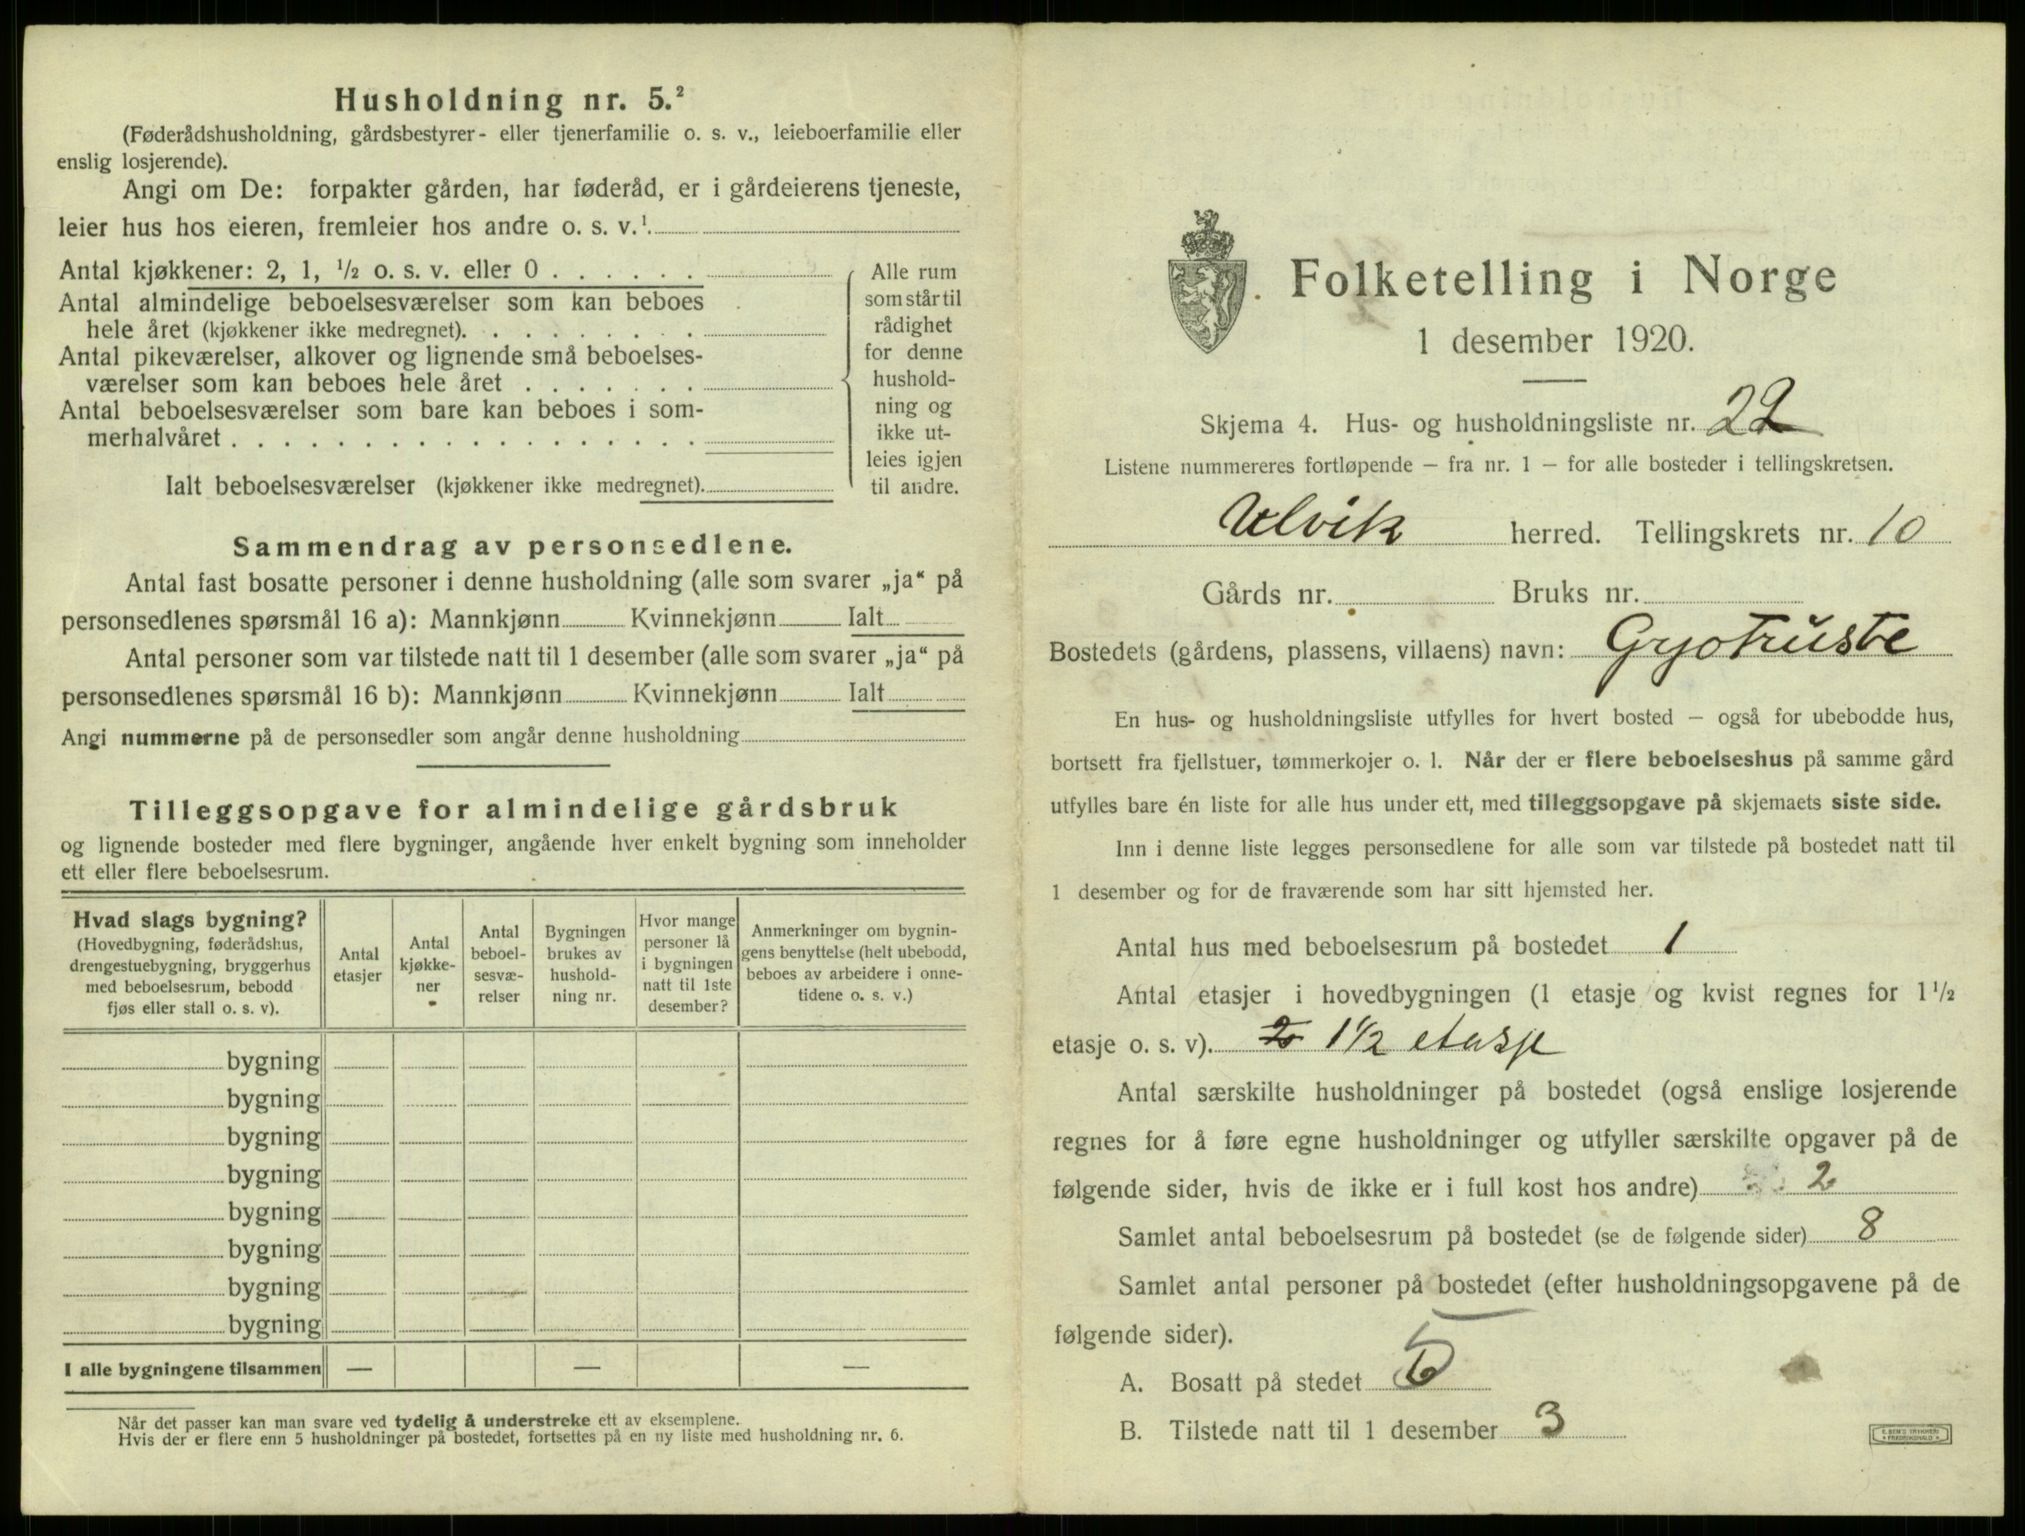 Husholdning nr. 5.²
(Føderådshusholdning, gårdsbestyrer- eller tjenerfamilie o. s. v., leieboerfamilie eller
enslig losjerende).
Angi om De: forpakter gården, har føderåd, er i gårdeierens tjeneste,
leier hus hos eieren, fremleier hos andre o. s. v.¹
Antal kjøkkener: 2, 1, ½ o. s. v. eller 0 . . . . . .
Antal almindelige beboelsesværelser som kan beboes
hele året (kjøkkener ikke medregnet). . . . . . . . .
Antal pikeværelser, alkover og lignende små beboelses-
værelser som kan beboes hele året . . . . . . .
Antal beboelsesværelser som bare kan beboes i som-
merhalvåret . . . . . . . . . . . . . . . . . .
Ialt beboelsesværelser (kjøkkener ikke medregnet).
Alle rum
som står til
rådighet
for denne
hushold-
ning og
ikke ut-
leies igjen
til andre.
Sammendrag av personsedlene.
Antal fast bosatte personer i denne husholdning (alle som svarer „ja“ på
personsedlenes spørsmål 16 a): Mannkjønn Kvinnekjønn Ialt
Antal personer som var tilstede natt til 1 desember (alle som svarer „ja“ på
personsedlenes spørsmål 16 b): Mannkjønn Kvinnekjønn Ialt
Angi nummerne på de personsedler som angår denne husholdning
Tilleggsopgave for almindelige gårdsbruk
og lignende bosteder med flere bygninger, angående hver enkelt bygning som inneholder
ett eller flere beboelsesrum.
Hvad slags bygning?
(Hovedbygning, føderådshus,
drengestuebygning, bryggerhus
med beboelsesrum, bebodd
fjøs eller stall o. s. v).
Antal
etasjer
Antal
kjøkke-
ner
Antal
beboel-
sesvæ-
relser
Bygningen
brukes av
hushold-
ning nr.
Hvor mange
personer lå
i bygningen
natt til 1ste
desember?
Anmerkninger om bygnin-
gens benyttelse (helt ubebodd,
beboes av arbeidere i onne-
tidene o. s. v.)
bygning
bygning
bygning
bygning
bygning
bygning
bygning
bygning
I alle bygningene tilsammen — — —
Når det passer kan man svare ved tydelig å understreke ett av eksemplene.
Hvis der er flere enn 5 husholdninger på bostedet, fortsettes på en ny liste med husholdning nr. 6.
Folketelling i Norge
1 desember 1920.
Skjema 4. Hus- og husholdningsliste nr. 22
Listene nummereres fortløpende – fra nr. 1 – for alle bosteder i tellingskretsen.
Ulvik herred. Tellingskrets nr. 10
Gårds nr. Bruks nr.
Bostedets (gårdens, plassens, villaens) navn: Gryotruste
En hus- og husholdningsliste utfylles for hvert bosted – også for ubebodde hus,
bortsett fra fjellstuer, tømmerkojer o. l. Når der er flere beboelseshus på samme gård
utfylles bare én liste for alle hus under ett, med tilleggsopgave på skjemaets siste side.
Inn i denne liste legges personsedlene for alle som var tilstede på bostedet natt til
1 desember og for de fraværende som har sitt hjemsted her.
Antal hus med beboelsesrum på bostedet 1
Antal etasjer i hovedbygningen (1 etasje og kvist regnes for 1½
etasje o. s. v). 1½ etasje
Antal særskilte husholdninger på bostedet (også enslige losjerende
regnes for å føre egne husholdninger og utfyller særskilte opgaver på de
følgende sider, hvis de ikke er i full kost hos andre) 2
Samlet antal beboelsesrum på bostedet (se de følgende sider) 8
Samlet antal personer på bostedet (efter husholdningsopgavene på de
følgende sider).
A. Bosatt på stedet 5
B. Tilstede natt til 1 desember 3